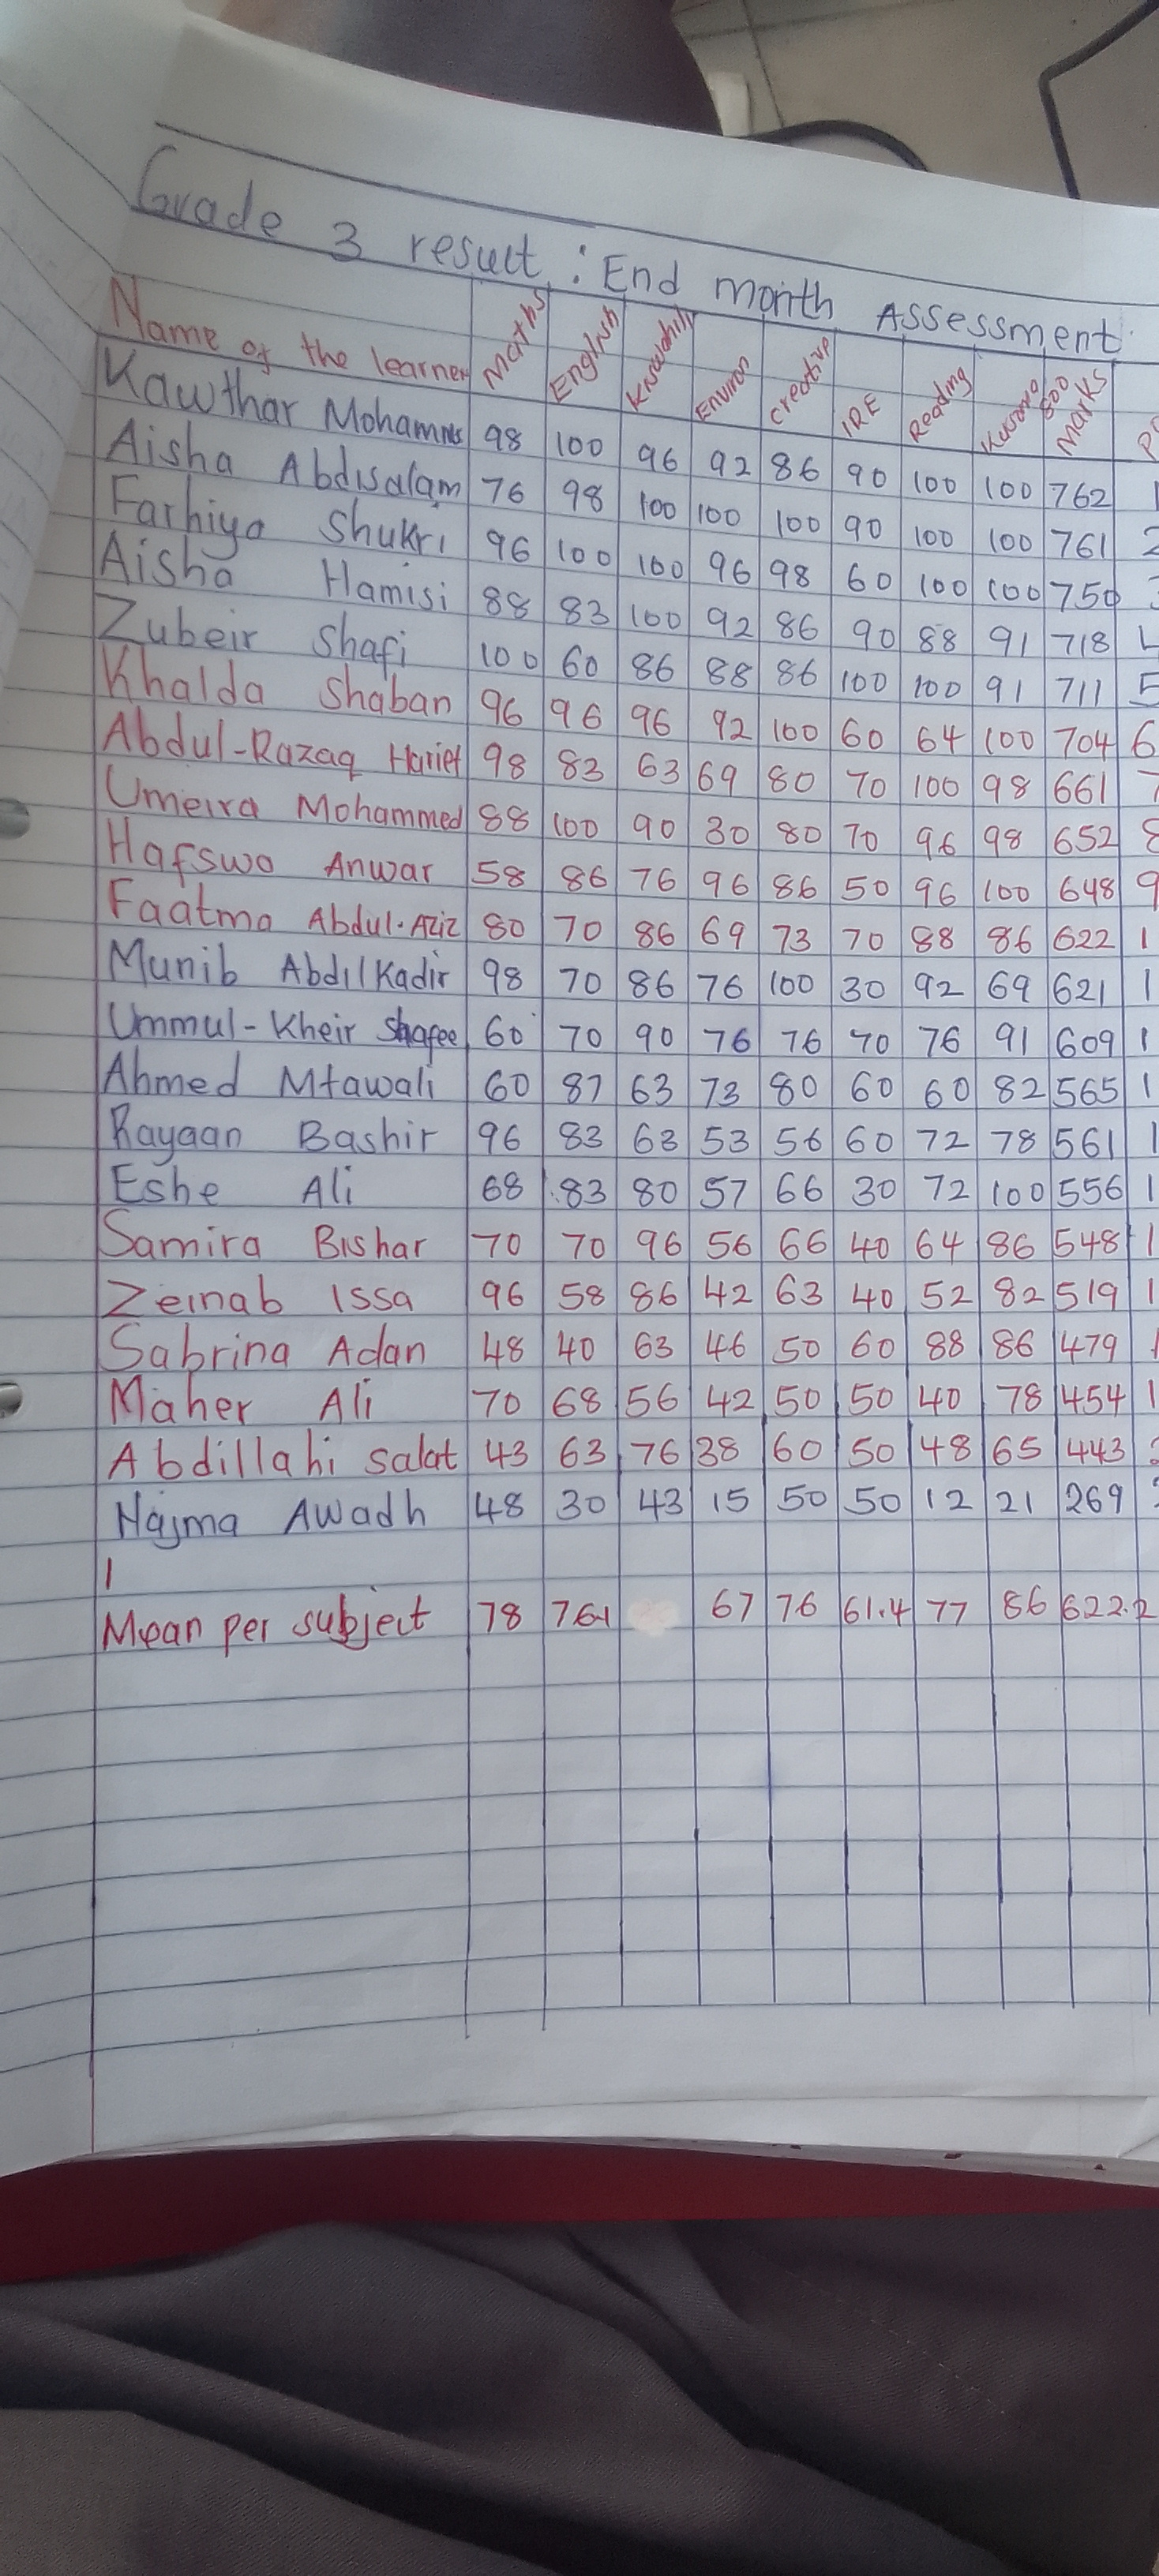 Grade 3 result : End month Assessment
Name of the learner Maths English Kiswahili Environ Creative IRE Reading Kusoma 800 Marks
Kawthar Mohammed 98 100 96 92 86 90 100 100 762 1
Aisha Abdisalam 76 98 100 100 100 90 100 100 761 2
Farhiya Shukri 96 100 100 96 98 60 100 100 750 3
Aisha Hamisi 88 83 100 92 86 90 88 91 718 4
Zubeir Shafi 100 60 86 88 86 100 100 91 711 5
Khalda Shaban 96 96 96 92 100 60 64 100 704 6
Abdul-Razaq Harief 98 83 63 69 80 70 100 98 661 7
Umeira Mohammed 88 100 90 30 80 70 96 98 652 8
Hafswa Anwar 58 86 76 96 86 50 96 100 648 9
Faatma Abdul-Aziz 80 70 86 69 73 70 88 86 622 1
Munib Abdilkadir 98 70 86 76 100 30 92 69 621 1
Ummul-Kheir Shafee 60 70 90 76 76 70 76 91 609 1
Ahmed Mtawali 60 87 63 73 80 60 60 82 565 1
Rayaan Bashir 96 83 63 53 56 60 72 78 561 1
Eshe Ali 68 83 80 57 66 30 72 100 556 1
Samira Bishar 70 70 96 56 66 40 64 86 548 1
Zeinab Issa 96 58 86 42 63 40 52 82 519 1
Sabrina Adan 48 40 63 46 50 60 88 86 479 1
Maher Ali 70 68 56 42 50 50 40 78 454 1
Abdillahi Salat 43 63 76 38 60 50 48 65 443 2
Najma Awadh 48 30 43 15 50 50 12 21 269
Mean per subject 78 76.1 67 76 61.4 77 86 622.2